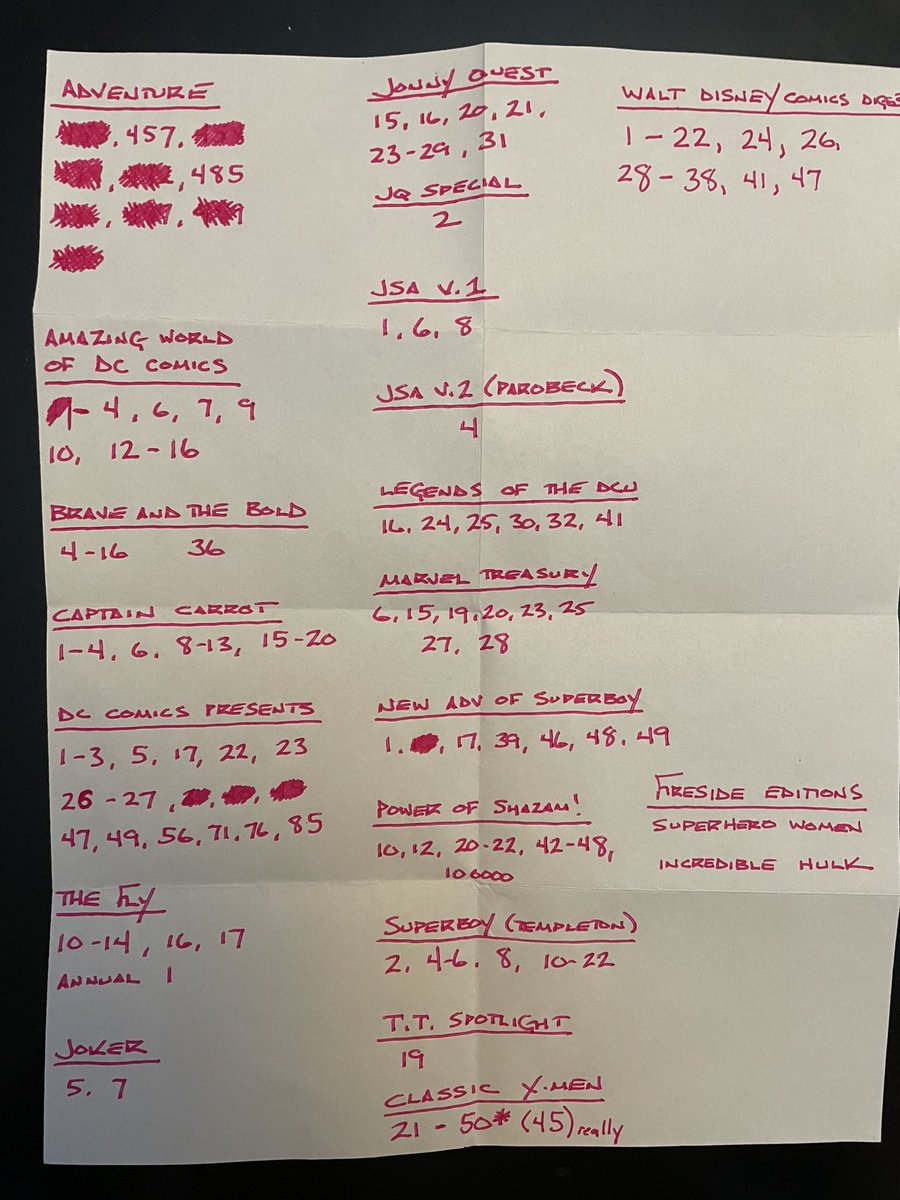 ADVENTURE
, 457,
, , 485
AMAZING WORLD
OF DC COMICS
- 4, 6, 7, 9
10, 12-16
BRAVE AND THE BOLD
4-16 36
CAPTAIN CARROT
1-4, 6, 8-13, 15-20
DC COMICS PRESENTS
1-3, 5, 17, 22, 23
26-27,
47, 49, 56, 71, 76, 85
THE FLY
10-14, 16, 17
ANNUAL 1
JOKER
5, 7
JONNY QUEST
15, 16, 20, 21,
23-29, 31
JQ SPECIAL
2
JSA V.1
1, 6, 8
JSA V.2 (PAROBECK)
4
LEGENDS OF THE DCU
16, 24, 25, 30, 32, 41
MARVEL TREASURY
6, 15, 19, 20, 23, 25
27, 28
NEW ADV OF SUPERBOY
1, , 17, 39, 46, 48, 49
POWER OF SHAZAM!
10, 12, 20-22, 42-48,
106000
SUPERBOY (TEMPLETON)
2, 4-6, 8, 10-22
T.T. SPOTLIGHT
19
CLASSIC X-MEN
21 - 50* (45) really
WALT DISNEY COMICS DIGES
1-22, 24, 26,
28-38, 41, 47
FIRESIDE EDITIONS
SUPERHERO WOMEN
INCREDIBLE HULK